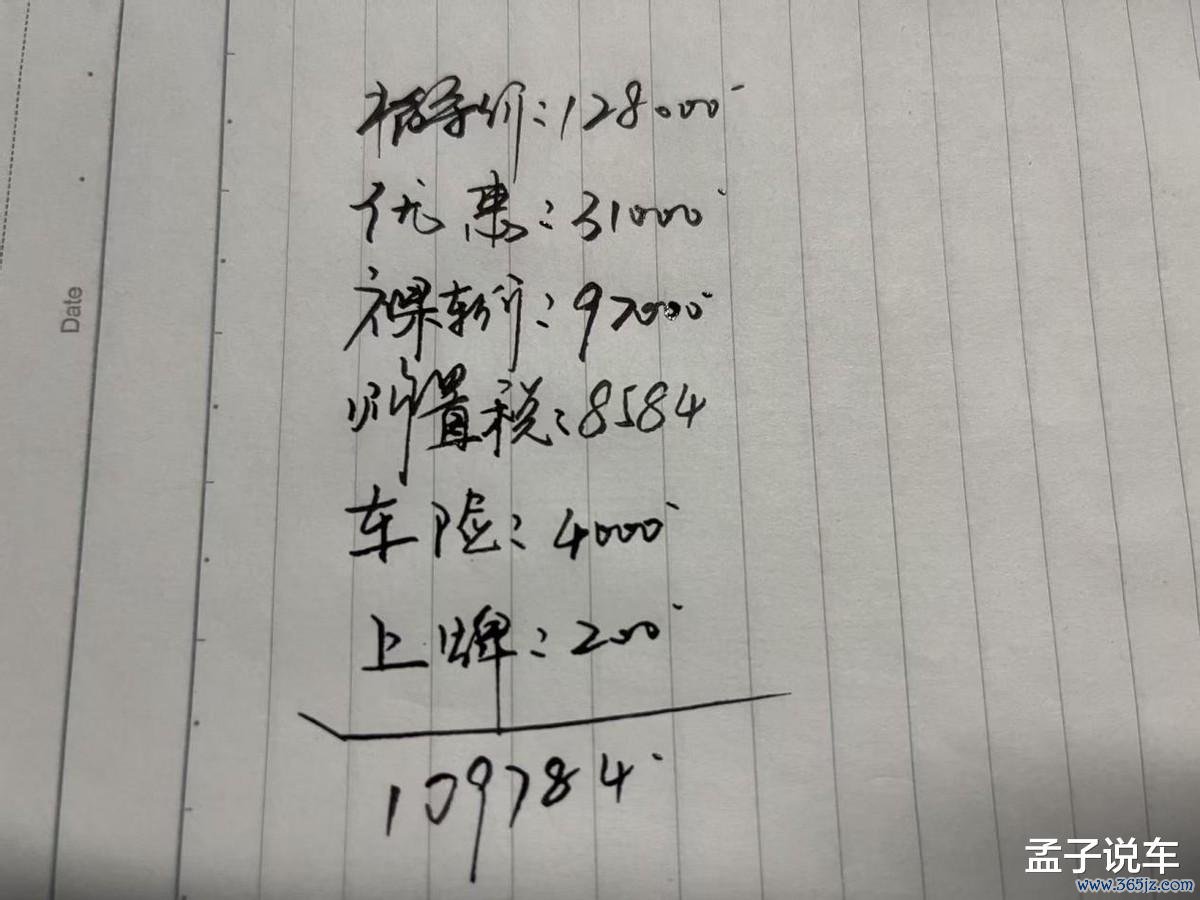 指导价：128000
优惠：31000
裸车价：97000
购置税：8584
车险：4000
上牌：200
109784
Date
孟子说车
www.365jz.com